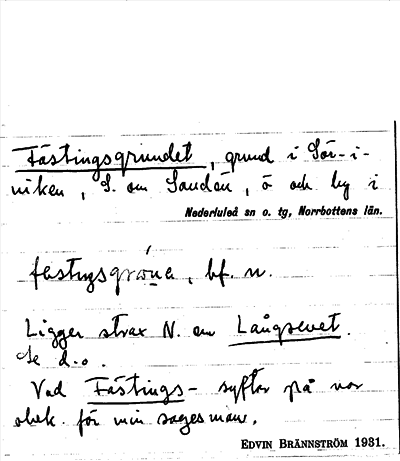 Fästingsgrundet, grund i Sör-i-
viken, S. om Sandön, ö och by i
Nederluleå sn o. tg, Norrbottens län.
bf. n.
Ligger strax N. om Långrevet.
Se d. o.
Vad Fästings- syftar på var
obek. för min sagesman.
EDVIN BRÄNNSTRÖM 1931.